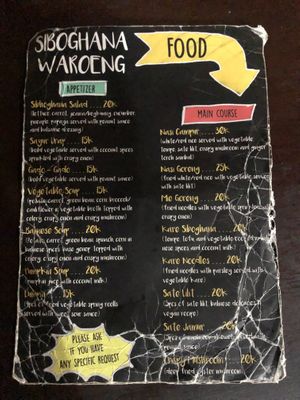 SIBOGHANA
WAROENG
FOOD
APPETIZER
Siboghana Salad .... 20k
(lettuce, carrot, jicama/bengkuang, cucumber,
pineapple, papaya served with peanut sauce
and balsamic dressing)
Sayur Urap .... 15k
(boiled vegetable served with coconut spices
sprinkled with crispy onion)
Gado - Gado .... 15k
(boiled vegetable served with peanut sauce)
Vegetable Soup .... 15k
(potato, carrot, green bean, corn, broccoli/
cauliflower & vegetable broth topped with
celery, crispy onion and crispy mushroom)
Balinese Soup .... 20k
(potato, carrot, green bean, spinach, corn in
balinese spices base genep topped with
celery, crispy onion and crispy mushroom)
Pumpkin Soup .... 20k
(pumpkin juice with coconut milk)
15k
of vegetable spring rolls
served with sauce)
PLEASE ASK
IF YOU HAVE
ANY SPECIFIC REQUEST
MAIN COURSE
Nasi Campur .... 30k
(white/red rice served with vegetable,
tempe, sate lilit, crispy mushroom and ginger
torch sambal)
Nasi Goreng .... 25k
(fried white/red rice with vegetable served
with sate lilit)
Mie Goreng .... 20k
(fried noodles with vegetable sprinkled
crispy onion)
Kare Siboghana .... 20k
(tempe, tofu, and vegetable
spices and coconut milk)
Kare Noodles .... 20k
(fried noodles with parsley served with
vegetable kare)
Sate Lilit .... 20k
(5pcs of sate lilit, balinese delicacies in
vegan recipe)
Sate Jamur .... 20k
Crispy Mushroom .... 20k
(deep fried oyster mushroom)